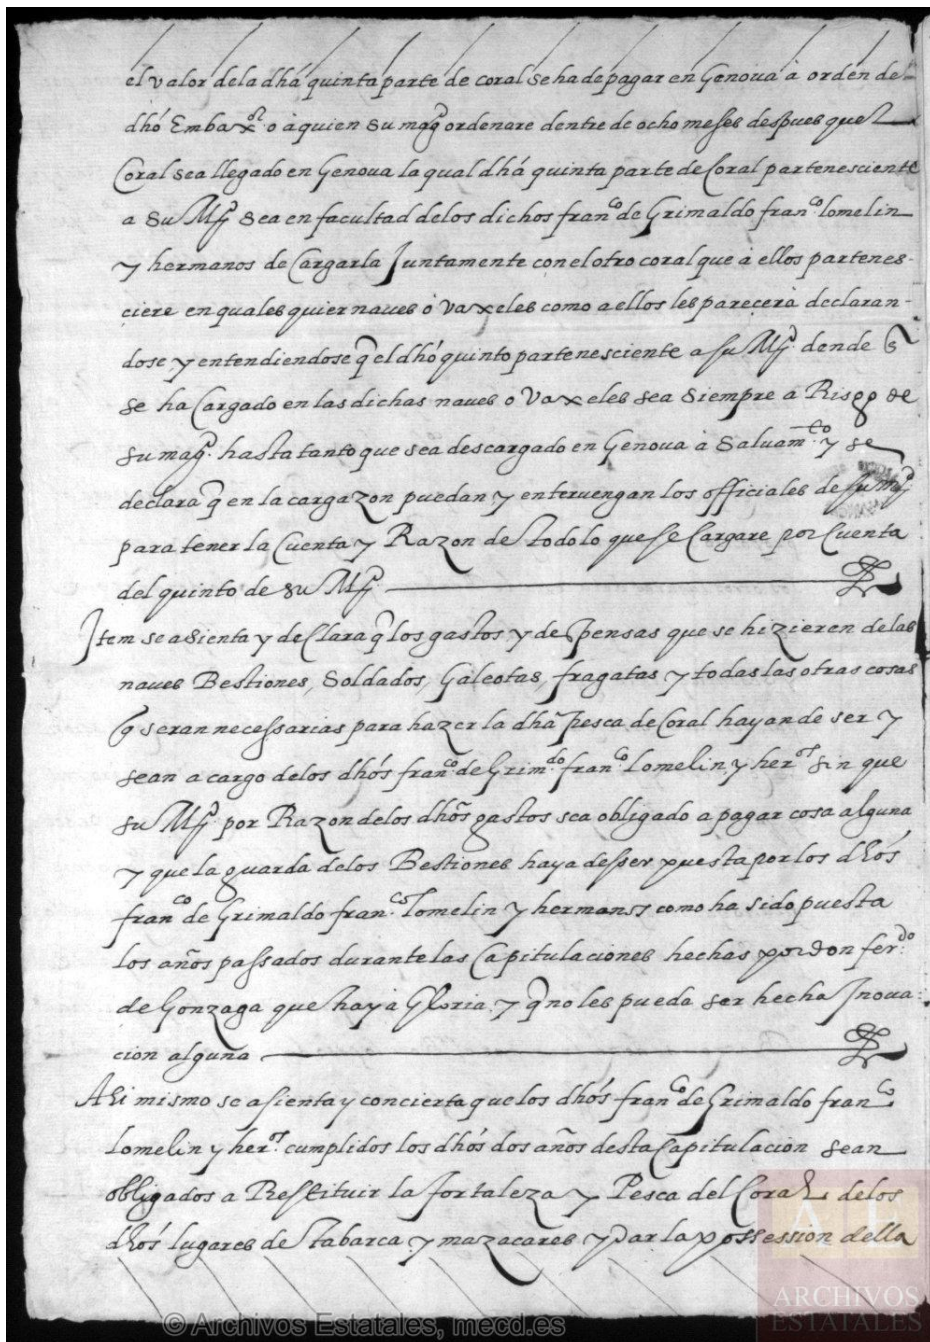 el valor dela dha quinta parte de coral se ha de pagar en Genoua à orden de
dhó Embaxor o à quien su magd ordenare dentre de ocho meses despues quel
Coral sea llegado en Genoua la qual dhá quinta parte de Coral partenesciente
a Su Mgd sea en facultad delos dichos franco de Grimaldo franco lomelin
y hermanos de Cargarla Juntamente con el otro coral que à ellos partenes-
ciere en quales quier naues ò Vaxeles como a ellos les parecerà declaran-
dose y entendiendose q el dhó quinto partenesciente a su Mgd dende q
se ha Cargado en las dichas naues o Vaxeles sea siempre à Risgo de
su magd hasta tanto que sea descargado en Genoua à Saluamto y se
declara q en la cargazon puedan y enteruengan los officiales de su Mgd
para tener la Cuenta y Razon de todo lo que se Cargare por Cuenta
del quinto de su Mgd
Item se asienta y desclara q los gastos y despensas que se hizieren de las
naues Bestiones, Soldados, Galeotas, fragatas y todas las otras cosas
q seran necessarias para hazer la dha Pesca de Coral hayan de ser y
sean a cargo delos dhós franco de Grimdo franco lomelin y heros sin que
su Mgd por Razon delos dhos gastos sea obligado a pagar cosa alguna
y que la guarda delos Bestiones haya de sser puesta por los dhós
franco de Grimaldo franco lomelin y hermanos como ha sido puesta
los años passados durante las Capitulaciones hechas por don ferdo
de Gonzaga que haya Gloria y q no les pueda ser hecha Inoua-
cion alguna
Asi mismo se asienta y concierta que los dhós franco de Grimaldo franco
lomelin y heros cumplidos los dhós dos años desta Capitulacion sean
obligados a Restituir la fortaleza y Pesca del Coral delos
dhós lugares de Tabarca y mazacares y dar la possession della
ARCHIVOS
ESTATALES
© Archivos Estatales, mecd.es